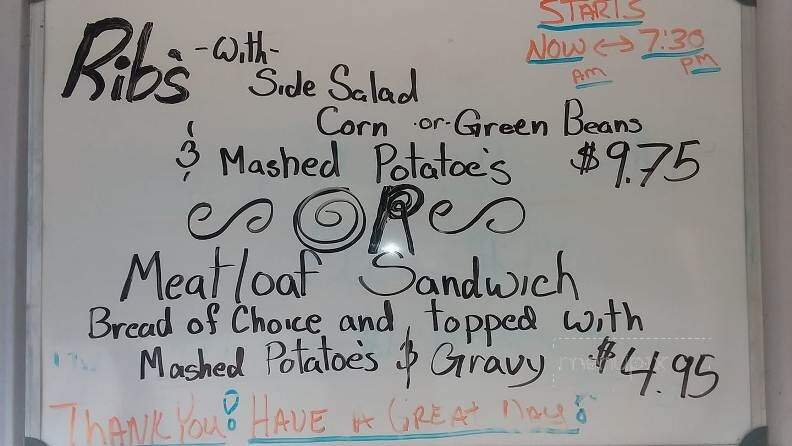 STARTS
NOW ↔ 7:30
AM PM
Ribs -With-
Side Salad
Corn -or- Green Beans
& Mashed Potatoe's $9.75
OR
Meatloaf Sandwich
Bread of Choice and topped with
Mashed Potatoe's & Gravy $4.95
THANK YOU! HAVE A GREAT DAY!